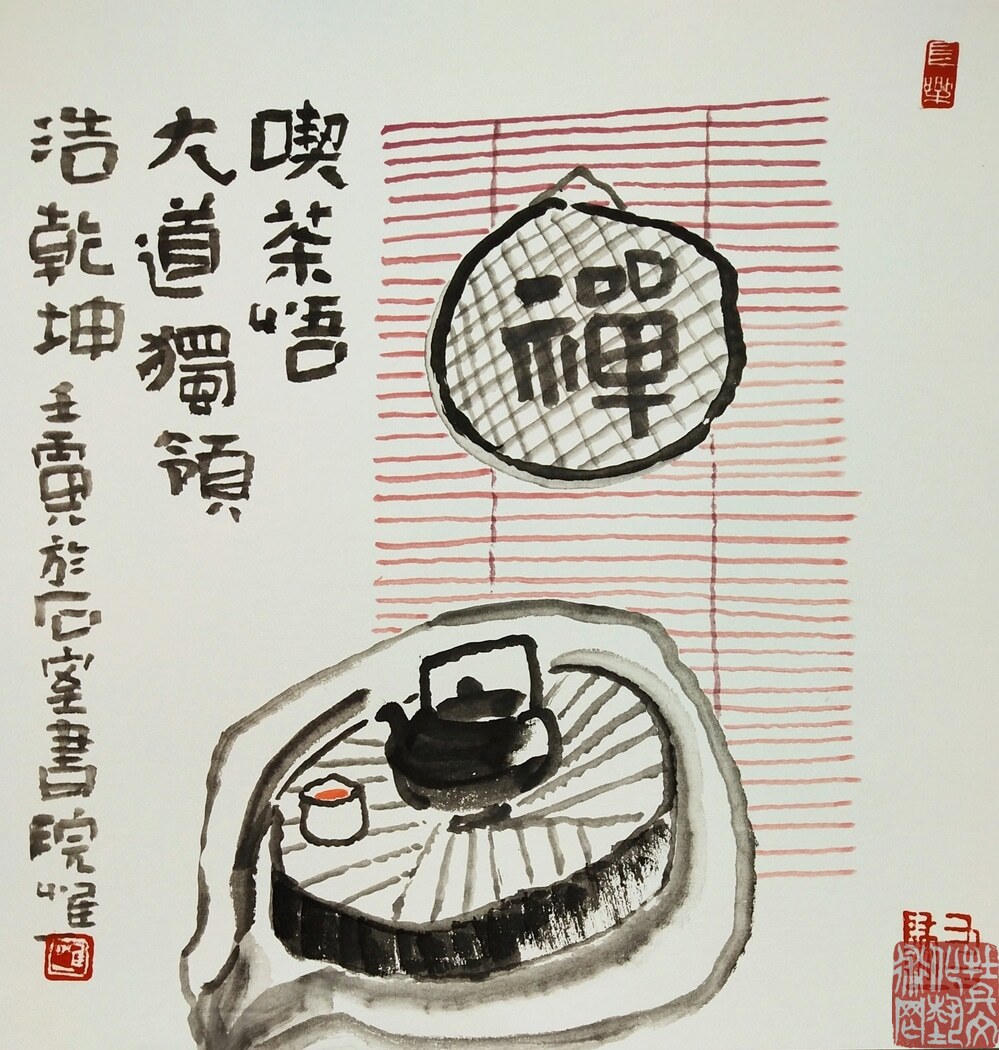 禪
喫茶悟
大道獨領
浩乾坤
壬寅於石室書院惟一